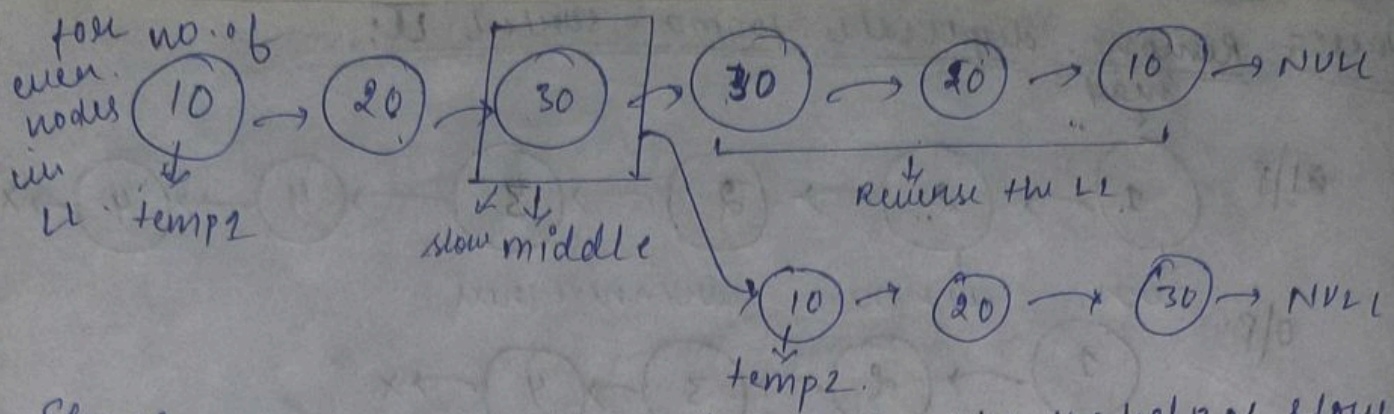 for no. of
even
nodes
in
LL
10 → 20 → 30 → 30 → 20 → 10 → NULL
temp1
slow middle
Reverse the LL
10 → 20 → 30 → NULL
temp2.